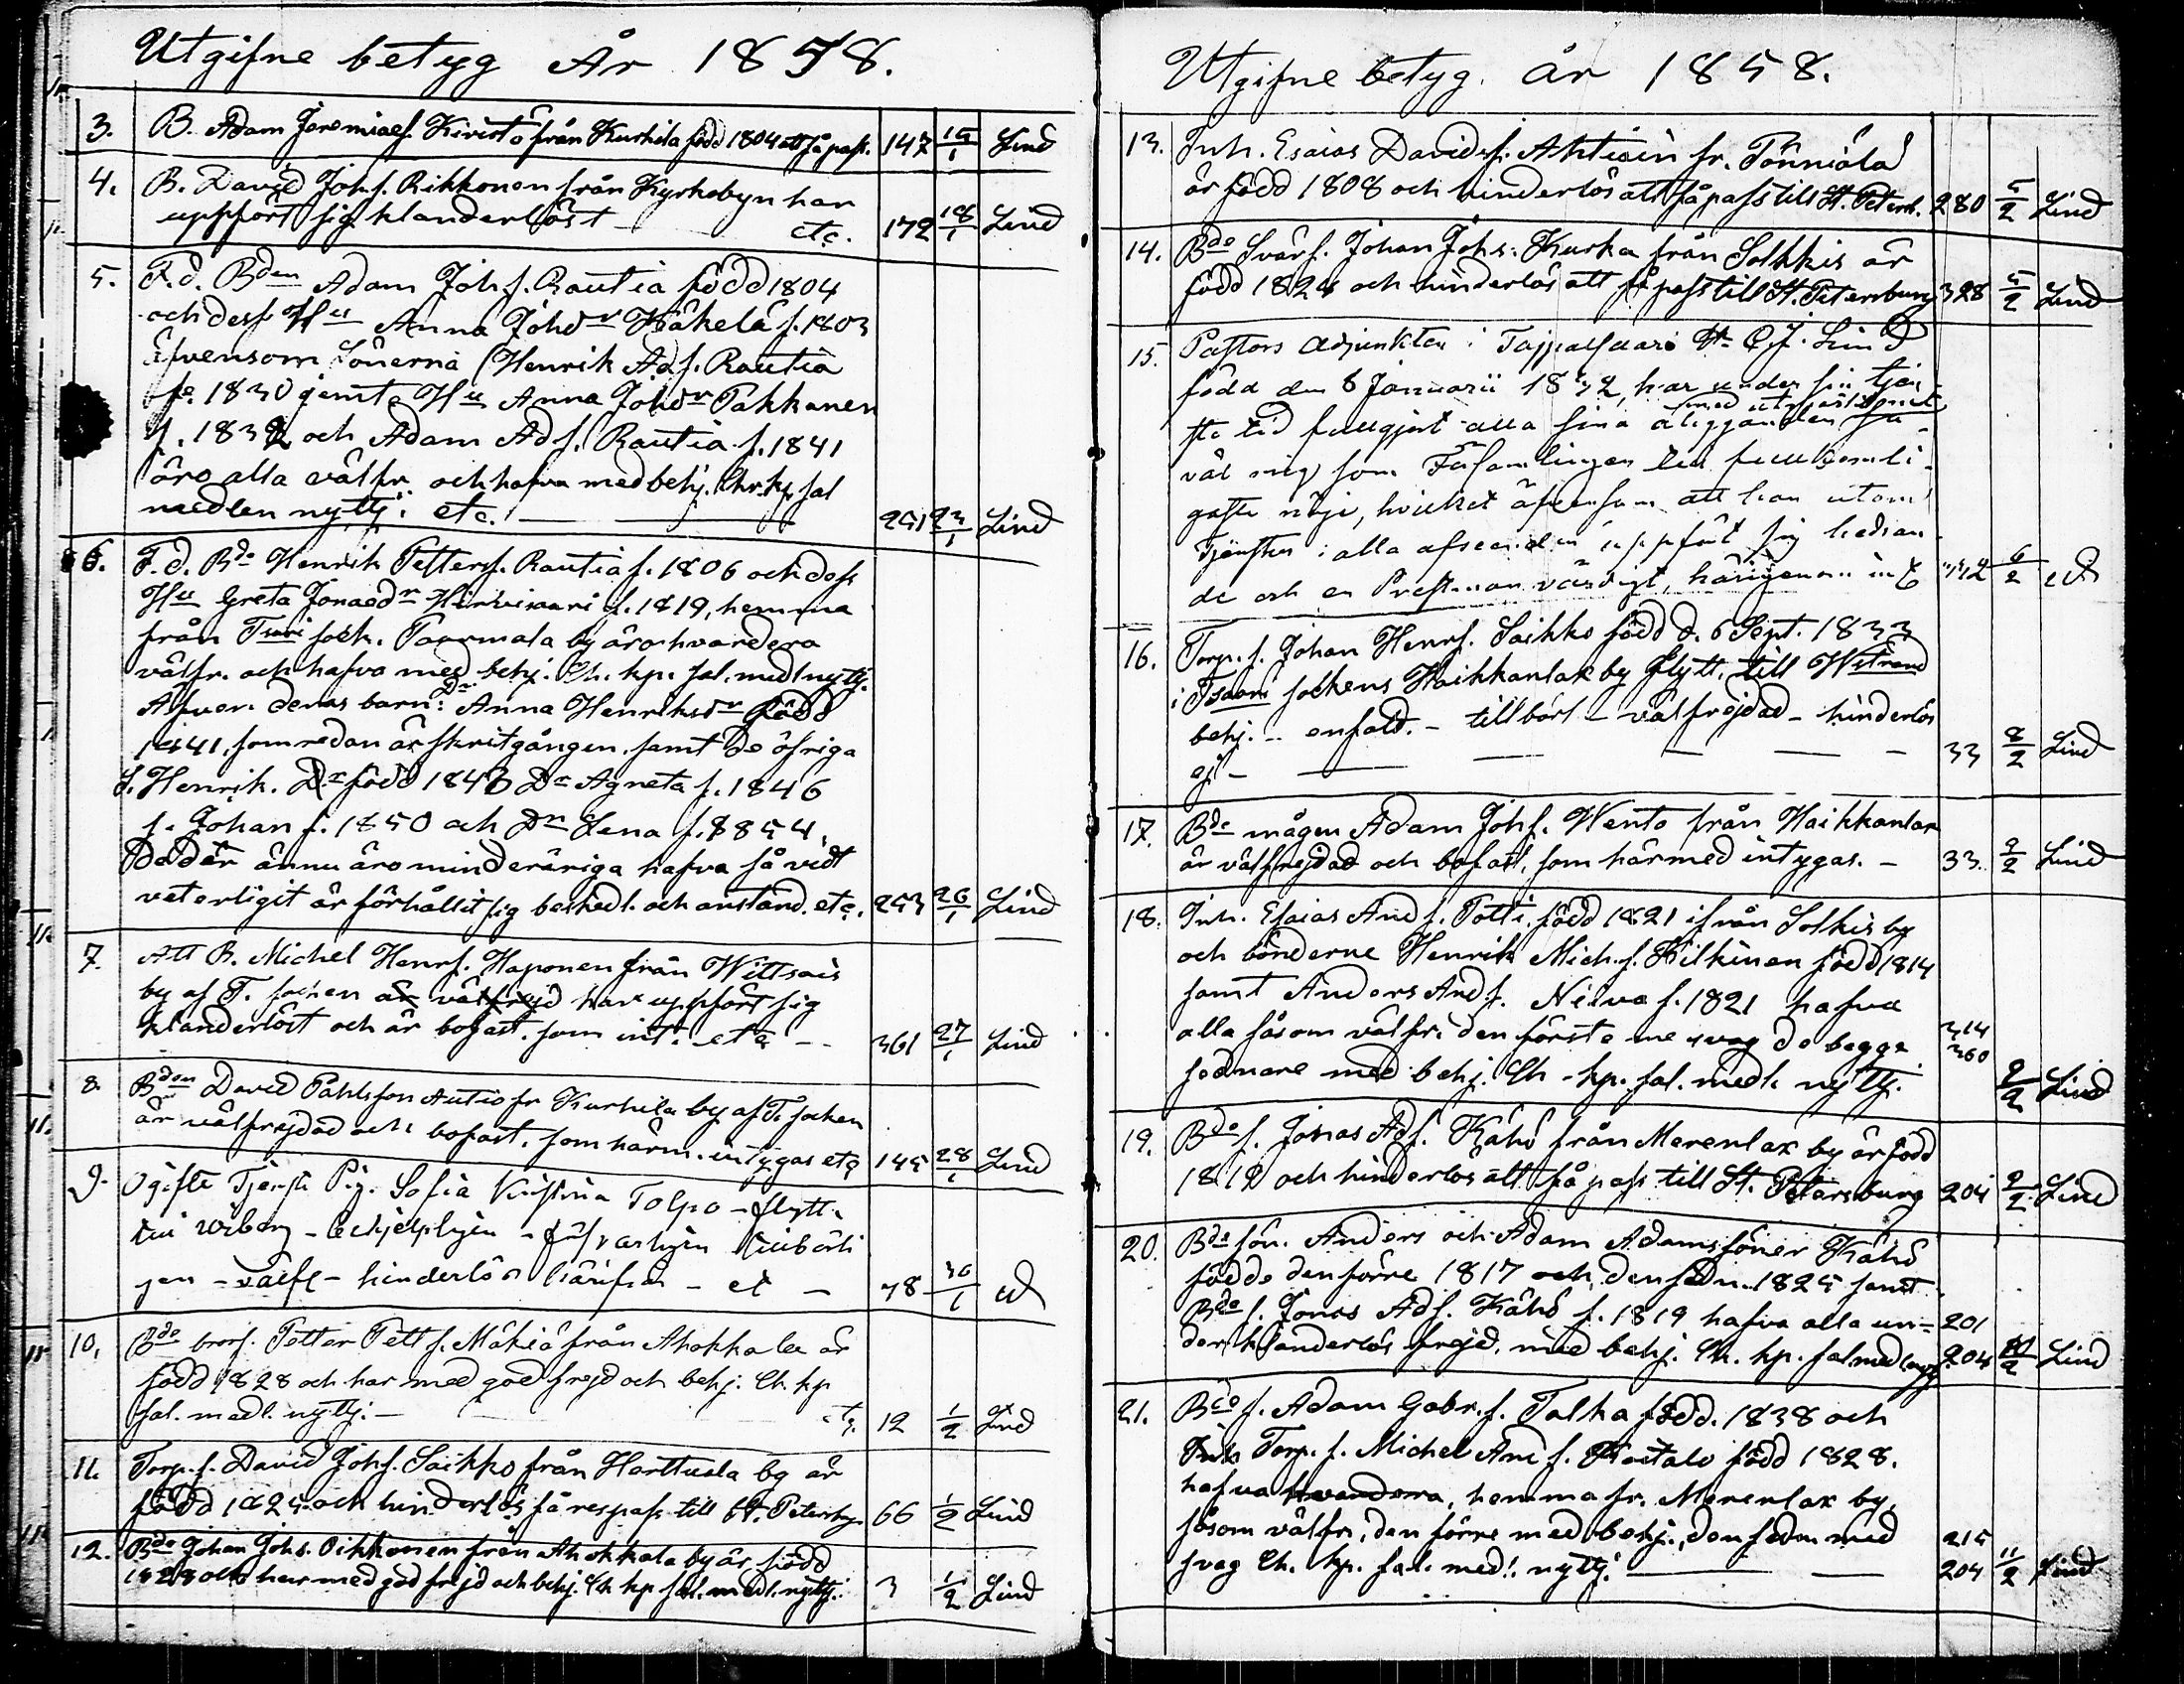 Utgifne betyg År 1858.
3. B. Adam Jeremiaes. Kiristö från Kurkela född 1804 att få pass. 147 15/1 Lind
4. B. David Johs. Rikkonen från Kyrkobyn har
uppfört sig klanderlöst etc. 172 18/1 Lind
5. F.d. Bden Adam Johs. Rautia född 1804
och dess Hu Anna Johdr Käkelä f. 1803
äfvensom Sönerna (Henrik Ads. Rautia
fö. 1830 jemte Hu Anna Johdr Pakkanen
f. 1832 och Adam Ads. Rautia f. 1841
äro alla välfr. och hafva med behj. Chr.kp sal
medlen nyttj: etc. 251 23/1 Lind
6. F.d. Bde Henrik Petters. Rautia f. 1806 och dess
Hu Greta Jonaedr Hirvivaari f. 1819, hemma
från sock. Paormala by äro hvardera
välfr. och hafva med behj. Ch. kp. sal. medl nyttj.
Äfven deras barn: Dr Anna Henriksdr född
1841, som redan är skriftgången, samt de öfriga
S. Henrik. född 1843 Dr Agneta f. 1846
s. Johan f. 1850 och Dr Lena f. 1854.
De där ännu äro minderåriga hafva så vidt
veterligit är förhållit sig beskedl. och anständ. etc. 253 26/1 Lind
7. Att B. Michel Henrs. Haponen från Wittsais
by af T. socken är välfrejd har uppfört sig
klanderlöst och är bofast, som int. etc - - 361 27/1 Lind
8. Bden David Pahlsson Autio fr Kurkela by af T. socken
är välfrejdad och bofast, som härm. intygas etc 145 28/1 Lind
9. Ogifta Tjenste Pig. Sofia Kristina Tolpo - flytt.
till Wiborg - behjelpligen - försvarligen tillbörli
gen - välfr - hinderlös härifrån - et - 78 30/1
10. Bde brors. Petter Petts. Mäkiä från Ahokkala är
född 1828 och har med god frejd och behj. Ch. kp
sal. medl. nyttj. - etc. 12 1/2 Lind
11. Torp. s. David Johs. Saikko från Harttuala by är
född 1825 och hinderlös få respass till St. Petersbg. 66 1/2 Lind
12. Bde Johan Johs. Oikkonen från Ahokkala by är född
1828 och har med god frejd och behj. Ch kp sal. medl. nyttj. 3 1/2 Lind
Utgifne betyg. år 1858.
13. Inh. Esaias Davids. Ahtiain fr. Pönniälä
är född 1808 och hinderlös att få pass till St. Petersb. 280 5/2 Lind
14. Bde Svärs. Johan Johs: Kurka från Solkkis är
född 1824 och hinderlös att få pass till St. Petersburg 328 5/2 Lind
15. Pastors Adjunkten i Taipalsaari Hr C.J. Lind
född den 8 Januarii 1832, har under sin tjen
ste tid fullgjort alla sina åligganden med utmärkt nit så
väl mig som Församlingen till fullkomli
gaste nöje, hvilket äfvensom att han utom
Tjensten i alla afseenden uppfört sig hedran
de och en Prestman värdigt, härigenom int 6/2
16. Torp. s. Johan Henrs. Saikko född d. 6 Sept. 1833
i sockens Haikkanlax by flytt. till Wstrand
behj. - enfald. - tillbörl - välfrejdad - hinderlös
33 8/2 Lind
17. Bde mågen Adam Johs. Wento från Haikkanlax
är välfrejdad och bofast, som härmed intygas. - 33. 9/2 Lind
18. Inh. Esaias Ands. Potti född 1821 ifrån Solkis by
och bönderne Henrik Mich. s. Hilkinen född 1814
samt Anders Ands. Neuva f. 1821 hafva
alla såsom välfr. den förste me svag de begge 314
360
sednare med behj. Ch - kp. sal. medl. nyttj. 9/2 Lind
19. Bde s. Jonas Ads. Kähö från Merenlax by är född
1819 och hinderlös att få pass till St. Petersburg 204 9/2 Lind
20. Bde sön. Anders och Adam Adamssöner Kähö
födde den förre 1817 och den sedn. 1825 samt
Bde s. Jonas Ads. Kähö f. 1819 hafva alla un= 201
der klanderlös frejd, med behj. Ch. kp. sal medl nyttj. 204 10/2 Lind
21. Bde s. Adam Gabr. s. Talka född. 1838 och
Inh Torp. s. Michel And s. Koitalo född 1828.
hafva hvardera, hemma fr. Merenlax by,
såsom välfr., den förre med behj., den sedn med 215
svag Ch. kp. sal. medl. nyttj. 204 11/2 Lind